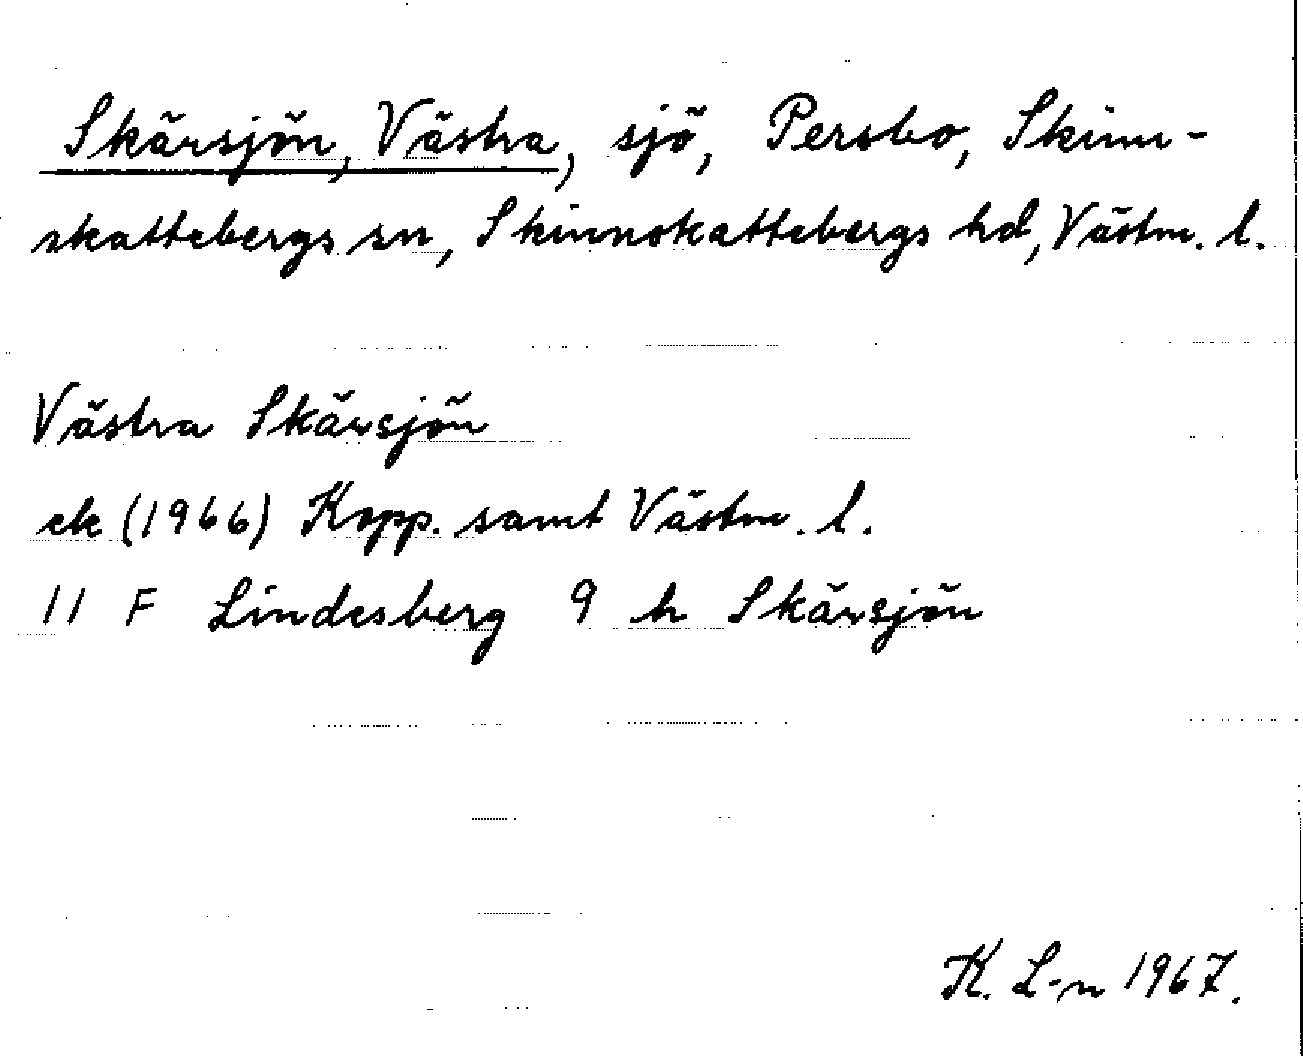 Skärsjön, Västra, sjö, Persbo, Skinn-
skattebergs sn, Skinnskattebergs hd, Västm. l.
Västra Skärsjön
ek (1966) Kopp. samt Västm. l.
11 F Lindesberg 9 h Skärsjön
K. L-n 1967.